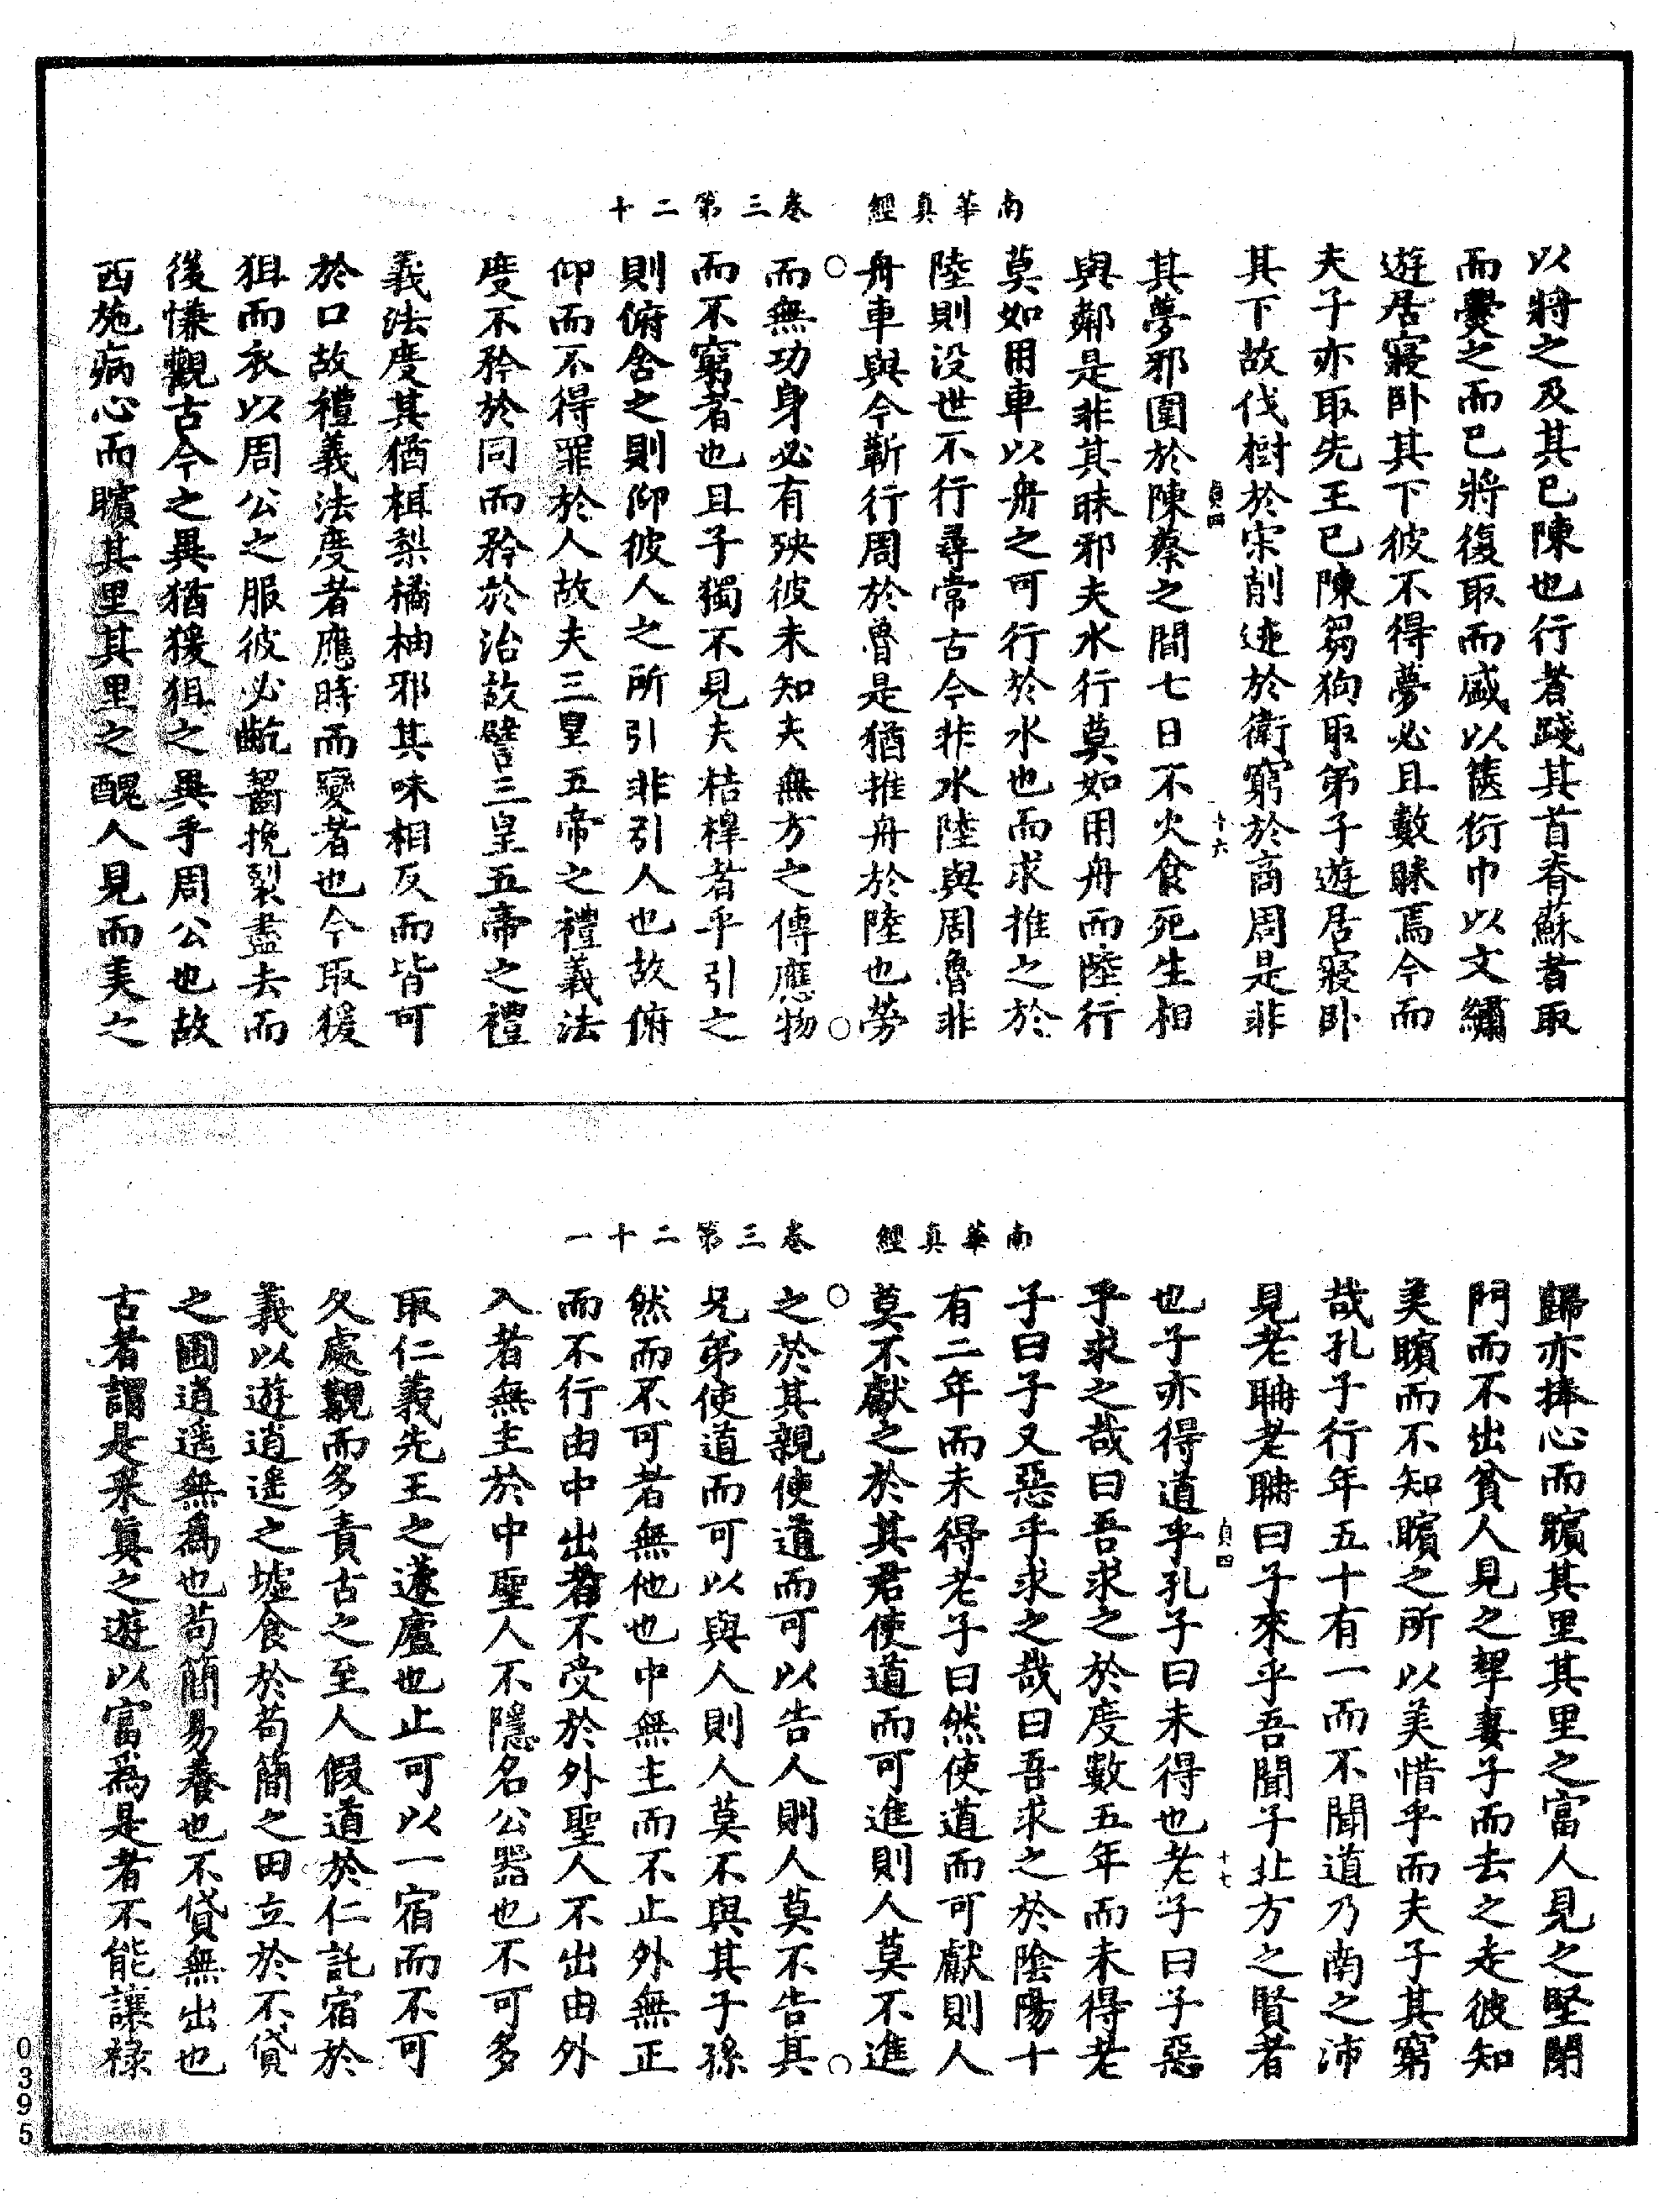 南華真經　卷三第二十
以將之及其已陳也行者踐其首脊蘇者取
而爨之而已將復取而盛以篋衍巾以文繡
遊居寢卧其下彼不得夢必且數眯焉今而
夫子亦取先王已陳芻狗取弟子遊居寢卧
其下故伐樹於宋削迹於衛窮於商周是非
貞四　十六
其夢邪圍於陳蔡之間七日不火食死生相
與鄰是非其昧邪夫水行莫如用舟而陸行
莫如用車以舟之可行於水也而求推之於
陸則没世不行尋常古今非水陸與周魯非
舟車與今蘄行周於魯是猶推舟於陸也勞
○　○
而無功身必有殃彼未知夫無方之傳應物
而不窮者也且子獨不見夫桔槔者乎引之
則俯舍之則仰彼人之所引非引人也故俯
仰而不得罪於人故夫三皇五帝之禮義法
度不矜於同而矜於治故譬三皇五帝之禮
義法度其猶柤梨橘柚邪其味相反而皆可
於口故禮義法度者應時而變者也今取猨
狙而衣以周公之服彼必齕齧挽裂盡去而
後慊觀古今之異猶猨狙之異乎周公也故
西施病心而矉其里其里之醜人見而美之
南華真經　卷三第二十一
歸亦捧心而矉其里其里之富人見之堅閉
門而不出貧人見之挈妻子而去之走彼知
美矉而不知矉之所以美惜乎而夫子其窮
哉孔子行年五十有一而不聞道乃南之沛
見老聃老聃曰子來乎吾聞子北方之賢者
貞四　十七
也子亦得道乎孔子曰未得也老子曰子惡
乎求之哉曰吾求之於度數五年而未得老
子曰子又惡乎求之哉曰吾求之於陰陽十
有二年而未得老子曰然使道而可獻則人
莫不獻之於其君使道而可進則人莫不進
○　○
之於其親使道而可以告人則人莫不告其
兄弟使道而可以與人則人莫不與其子孫
然而不可者無他也中無主而不止外無正
而不行由中出者不受於外聖人不出由外
入者無主於中聖人不隱名公器也不可多
取仁義先王之蘧廬也止可以一宿而不可
久處觀而多責古之至人假道於仁託宿於
義以遊逍遙之墟食於苟簡之田立於不貸
之圃逍遥無爲也苟簡易養也不貸無出也
古者謂是采真之遊以富爲是者不能讓禄
0395